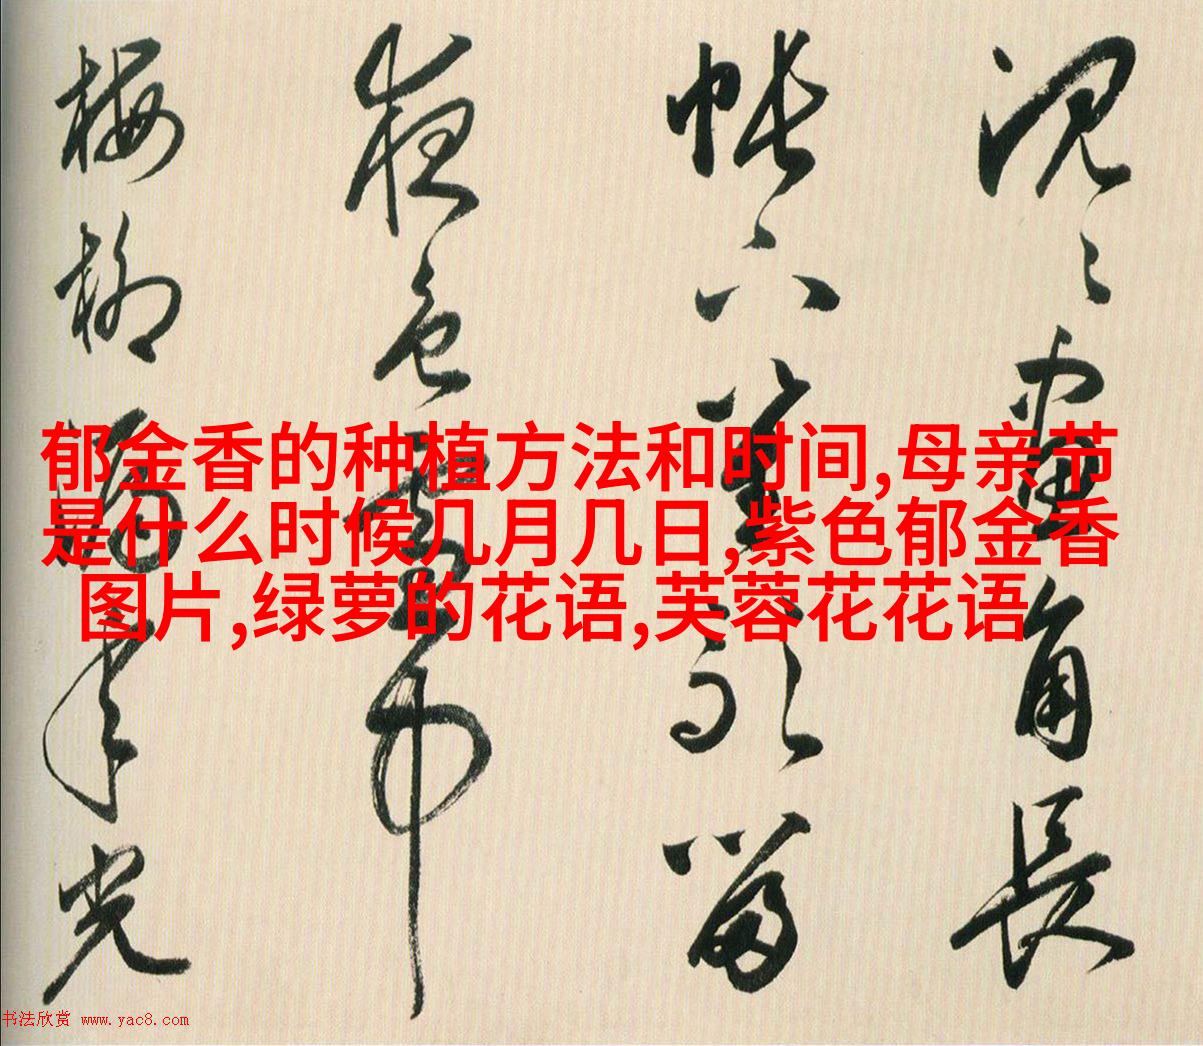 沉〻畫角長
留
夜色
梅柳隔年光
郁金香的种植方法和时间,母亲节
是什么时候几月几日,紫色郁金香
图片,绿萝的花语,芙蓉花花语
书法欣赏 www.yac8.com